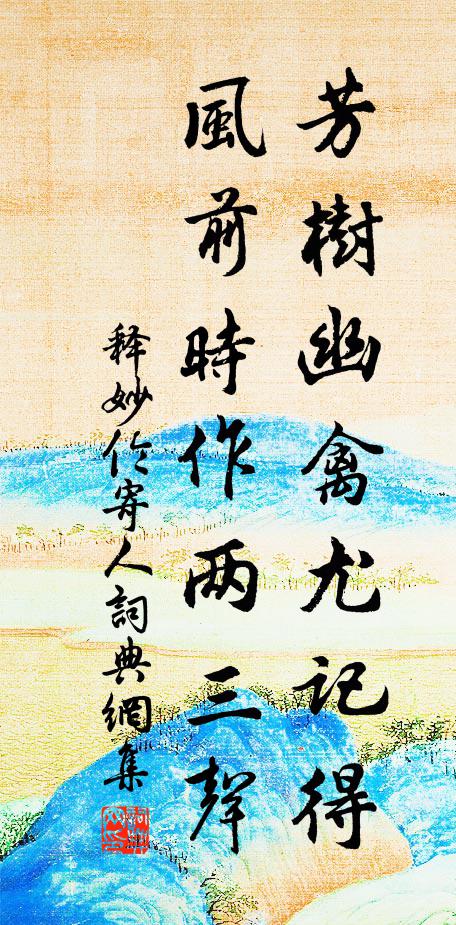 芳樹幽禽尤记得
風前時作兩三聲
释妙伦寄人詞典網集